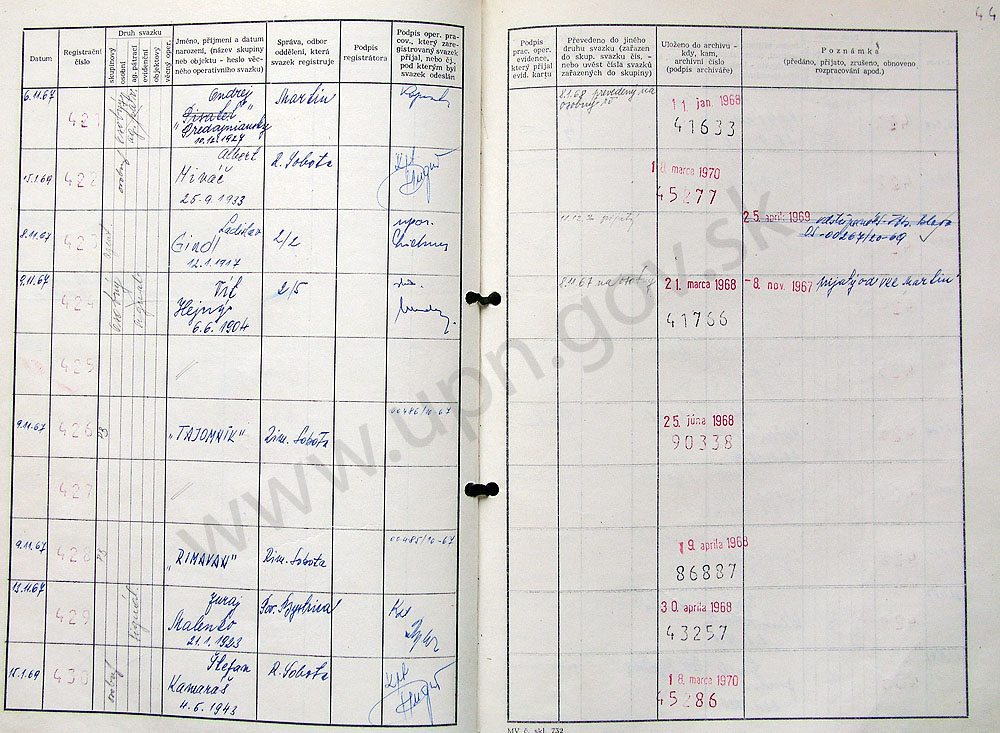 44
Datum
Registrační
číslo
Druh svazku
skupinový
osobní
ag. pátrací
evidenční
objektový
věcný oper.
Jméno, příjmení a datum
narození, (název skupiny
neb objektu - heslo věc-
ného operativního svazku)
Správa, odbor
oddělení, která
svazek registruje
Podpis
registrátora
Podpis oper. pra-
cov., který zare-
gistrovaný svazek
přijal, nebo čj.,
pod kterým byl
svazek odeslán
Podpis
prac. oper.
evidence,
který přijal
evid. kartu
Převedeno do jiného
druhu svazku (zařazen
do skup. svazku čís. -
nebo uvést čísla svazků
zařazených do skupiny)
Uloženo do archivu -
kdy, kam,
archivní číslo
(podpis archiváře)
Poznámka
(předáno, přijato, zrušeno, obnoveno
rozpracování apod.)
6.11.67
421
Ondrej
"Predajniansky"
10.12.1927
Martin
8.1.68 prevedený na
osobný
11 jan. 1968
41633
15.1.69
422
osobný
Albert
Mináč
25.9.1933
R. Sobota
18. marca 1970
45277
8.11.67
423
agent
Ladislav
Gindl
12.1.1917
2/2
25. apríla 1969
00267/20-69
9.11.67
424
osobný
signál
Vít
Hejný
6.6.1904
2/5
8.11.67 na osobný
21. marca 1968
41766
-8. nov. 1967
prijatý od VEC Martin
425
9.11.67
426
PS
"TAJOMNÍK"
Rim. Sobota
00486/10-67
25. júna 1968
90338
427
9.11.67
428
PS
"RIMAVAN"
Rim. Sobota
00485/10-67
19. apríla 1968
86887
13.11.67
429
signál
Juraj
Malenko
21.1.1923
Pov. Bystrica
30. apríla 1968
43257
15.1.69
430
osobný
Štefan
Kamaráš
4.6.1943
R. Sobota
18. marca 1970
45286
MV 6. skl. 732
www.upn.gov.sk